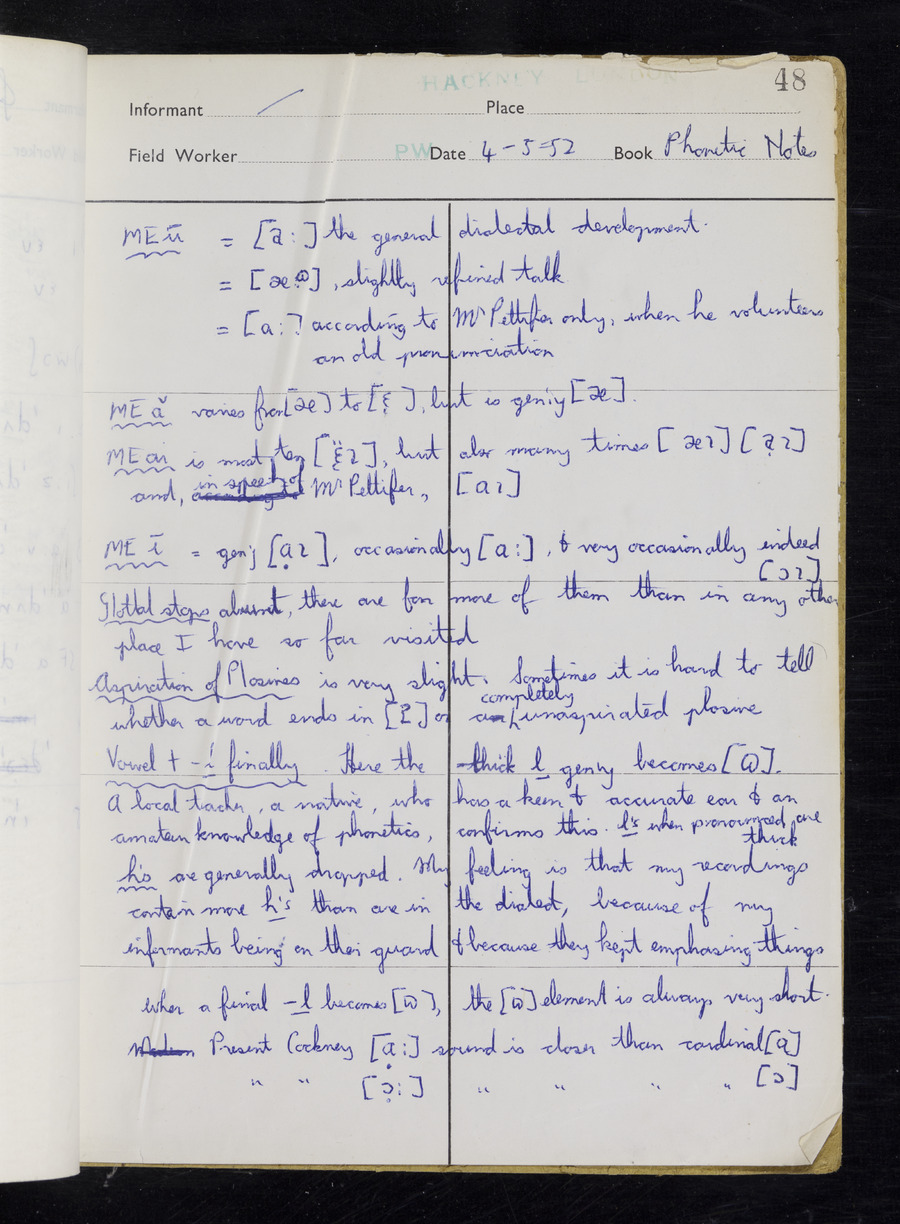 HACKNEY LONDON
48
Informant Place
Field Worker PW Date 4-5-52 Book Phonetic Notes
ME ū = [a̅:] the general dialectal development.
= [æ:ɷ], slightly refined talk
= [a:] according to Mr Pettifer only, when he volunteers
an old pronunciation
ME ă varies from [æ] to [ɛ̣], but is gen'ly [æ].
ME ai is most often [ɛ̣̈ɩ], but also many times [æɩ] [ạɩ]
and, in speech of Mr Pettifer, [aɩ]
ME ī = gen'y [ɑ̣ɩ], occasionally [a:], & very occasionally indeed
[ɔɩ]
Glottal stops abound, there are far more of them than in any other
place I have so far visited
Aspiration of Plosives is very slight. Sometimes it is hard to tell
whether a word ends in [ʔ] or a completely unaspirated plosive
Vowel + -l finally. Here the thick l genly becomes [ɷ].
A local teacher, a native, who has a keen & accurate ear & an
amateur knowledge of phonetics, confirms this. l's when pronounced, are
thick
h's are generally dropped. My feeling is that my recordings
contain more h's than are in the dialect, because of my
informants being on their guard & because they kept emphasing things
when a final -l becomes [ɷ], the [ɷ] element is always very short.
Present Cockney [ɑ̣:] sound is closer than cardinal [ɑ]
" " [ɔ̣:] " " " " [ɔ]